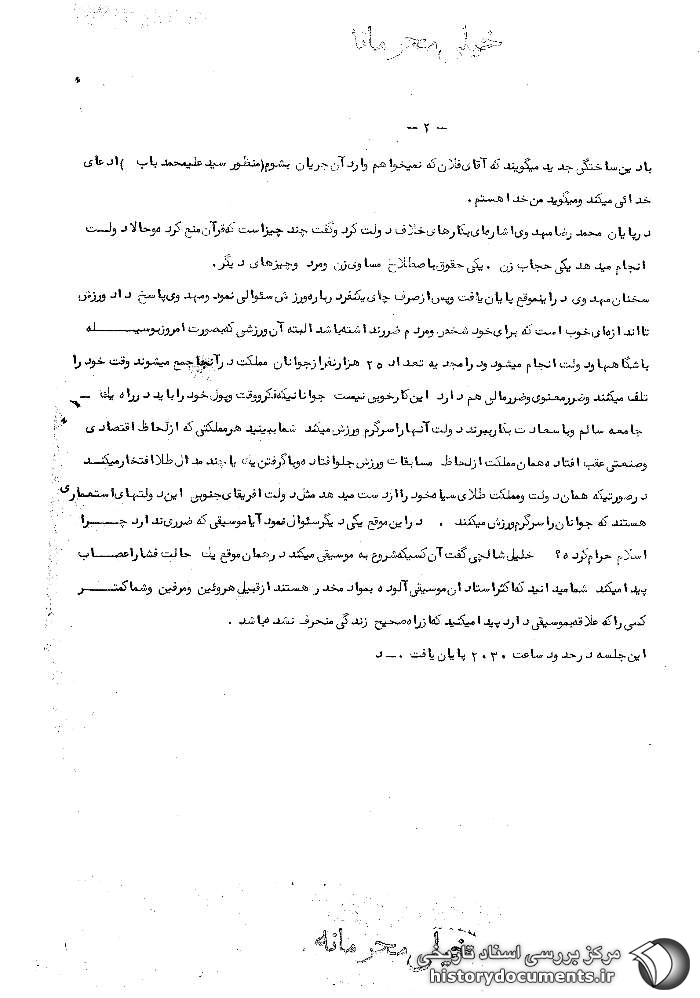 خیلی محرمانه
- ۲ -
بادین ساختگی جدید میگویند که آقای فلان که نمیخواهم وارد آن جریان بشوم (منظور سید علیمحمد باب) ادعای
خدائی میکند ومیگوید من خدا هستم .
درپایان محمد رضا مهدوی اشاره‌ای بکارهای خلاف دولت کرد وگفت چند چیزاست که قرآن منع کرده وحالا دولت
انجام میدهد یکی حجاب زن . یکی حقوق باصطلاح مساوی زن ومرد وچیزهای دیگر .
سخنان مهدوی دراینموقع پایان یافت وپس ازصرف چای یکنفرد رباره ورزش سئوالی نمود ومهدوی پاسخ داد ورزش
تا اندازه‌ای خوب است که برای خود شخص ومردم ضررنداشته باشد البته آن ورزشی که بصورت امروز بوسیله
باشگاهها ودولت انجام میشود ودرامجدیه تعداد ۲۵ هزارنفرازجوانان مملکت درآنجا جمع میشوند وقت خود را
تلف میکنند وضررمعنوی وضررمالی هم دارد این کارخوبی نیست جوانانیکه فکرووقت وپول خود را باید درراه یک
جامعه سالم وباسعادت بکارببرند دولت آنهاراسرگرم ورزش میکند شماببینید هرمملکتی که ازلحاظ اقتصادی
وصنعتی عقب افتاده همان مملکت ازلحاظ مسابقات ورزش جلوافتاده وباگرفتن یک یا چند مدال طلا افتخارمیکند
درصورتیکه همان دولت ومملکت طلای سیاه خود راازدست میدهد مثل دولت افریقای جنوبی این دولتهای استعماری
هستند که جوانان راسرگرم ورزش میکنند . دراین موقع یکی دیگرسئوال نمود آیاموسیقی که ضرری ندارد چرا
اسلام حرام کرده ؟ خلیل شالچی گفت آن کسیکه شروع به موسیقی میکند درهمان موقع یک حالت فشاراعصاب
پیدامیکند شمامیدانید که اکثراستادان موسیقی آلوده بمواد مخدر هستند ازقبیل هروئین ومرفین وشماکمتر
کسی راکه علاقه بموسیقی دارد پیدامیکنید که ازراه صحیح زندگی منحرف نشده باشد .
این جلسه درحدود ساعت ۲۰۳۰ پایان یافت . – د
خیلی محرمانه
مرکز بررسی اسناد تاریخی
historydocuments.ir